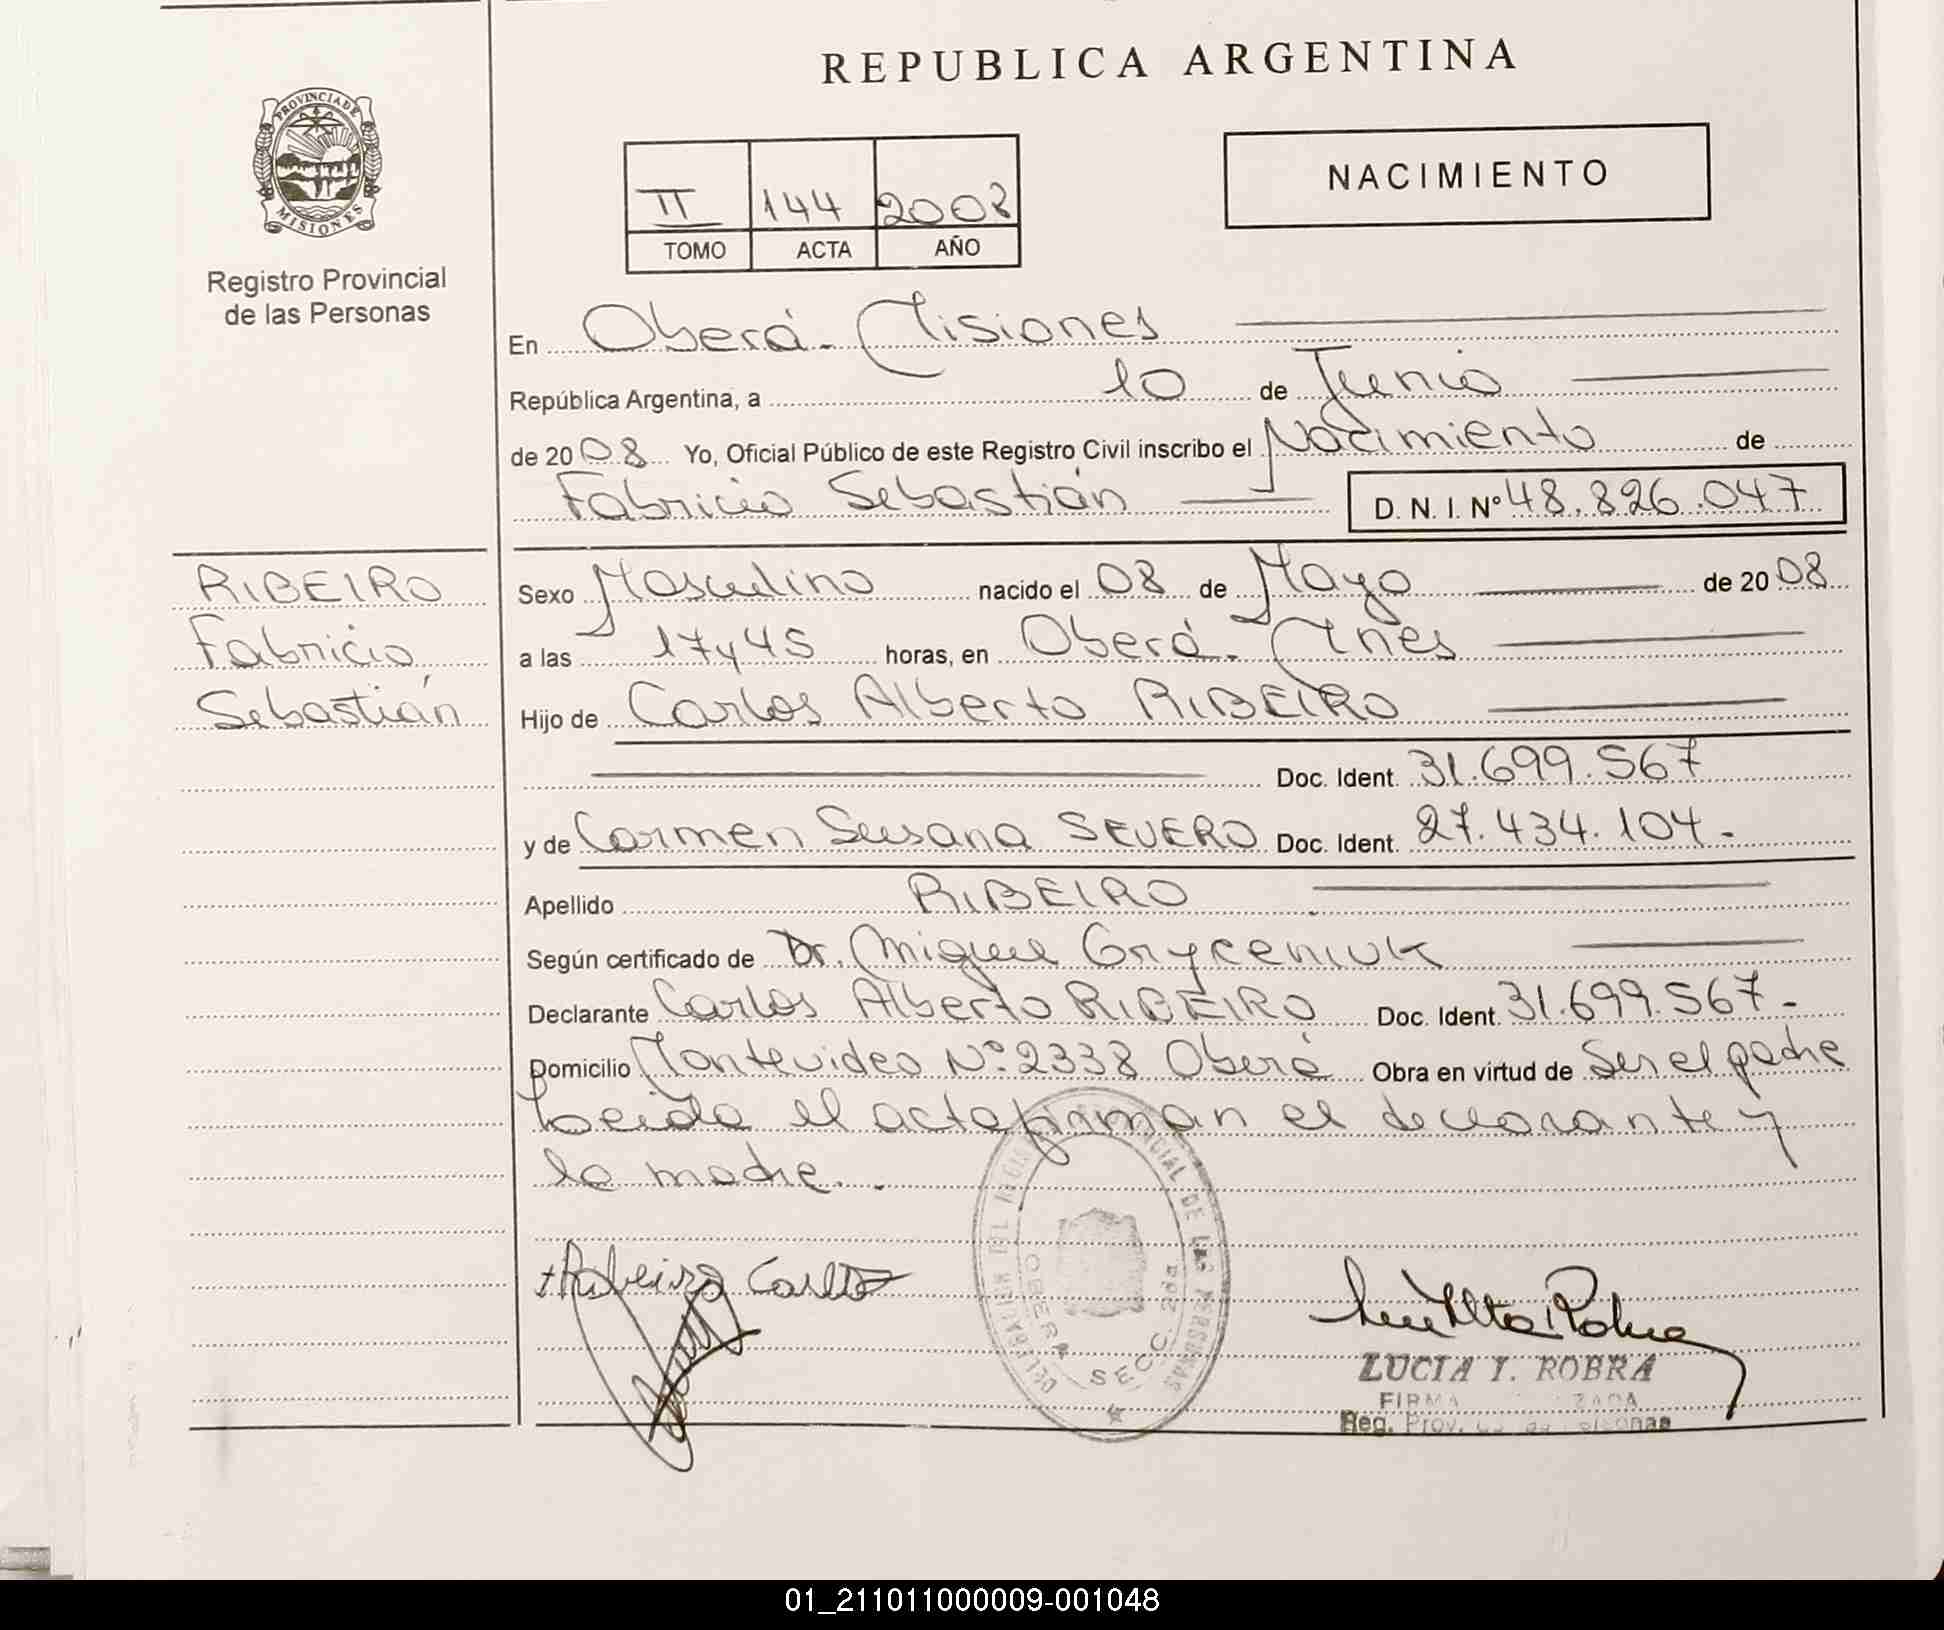 REPUBLICA ARGENTINA
PROVINCIA DE
MISIONES
Registro Provincial
de las Personas
II 144 2008
TOMO ACTA AÑO
NACIMIENTO
En Oberá - Misiones
República Argentina, a 10 de Junio
de 2008 Yo, Oficial Público de este Registro Civil inscribo el Nacimiento de
Fabricio Sebastián D. N. I. Nº 48.826.047
RIBEIRO
Fabricio
Sebastián
Sexo Masculino nacido el 08 de Mayo de 2008
a las 17y45 horas, en Oberá - Mnes
Hijo de Carlos Alberto RIBEIRO
Doc. Ident. 31.699.567
y de Carmen Susana SEVERO Doc. Ident. 27.434.104.-
Apellido RIBEIRO
Según certificado de Dr. Miguel Gryceniuk
Declarante Carlos Alberto RIBEIRO Doc. Ident. 31.699.567.-
Domicilio Montevideo Nº 2338 Oberá Obra en virtud de Ser el padre
Leida el acta firman el declarante y
la madre.-
Ribeiro Carlos
DELEGACION DEL REGISTRO PROVINCIAL DE LAS PERSONAS
OBERA SECC. 2da
LUCIA I. ROBRA
FIRMA
Reg. Prov.
01_211011000009-001048